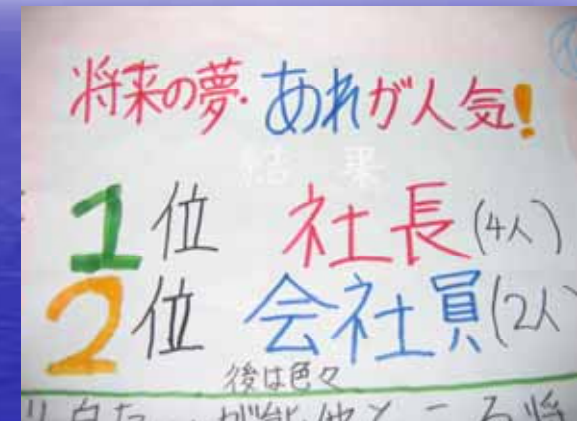 将来の夢・あれが人気!
結果
1位 社長(4人)
2位 会社員(2人)
後は色々